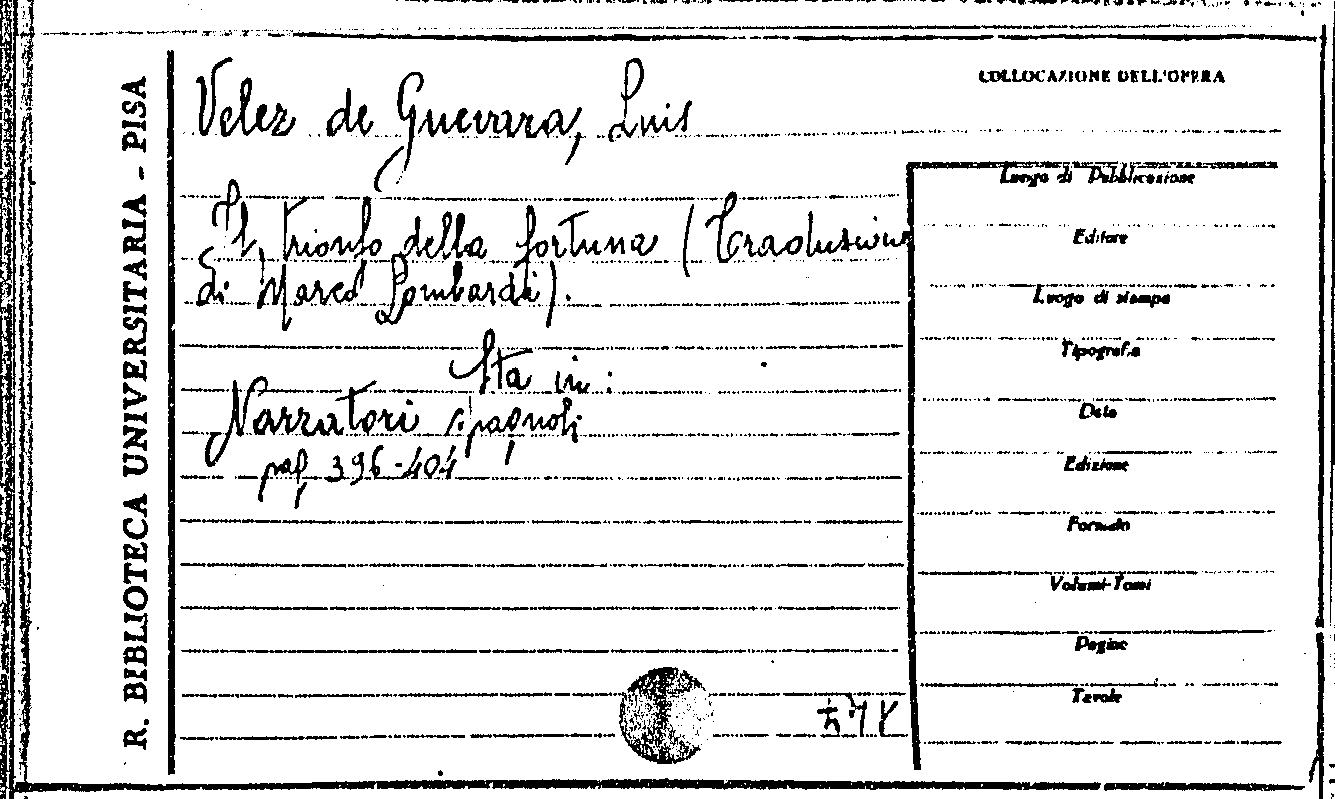 R. BIBLIOTECA UNIVERSITARIA - PISA
COLLOCAZIONE DELL'OPERA
Velez de Guevara, Luis
Il trionfo della fortuna (Traduzione
di Marco Lombardi).
Sta in:
Narratori spagnoli
pag. 396-404
Luogo di Pubblicazione
Editore
Luogo di stampa
Tipografia
Data
Edizione
Formato
Volumi-Tomi
Pagine
Tavole